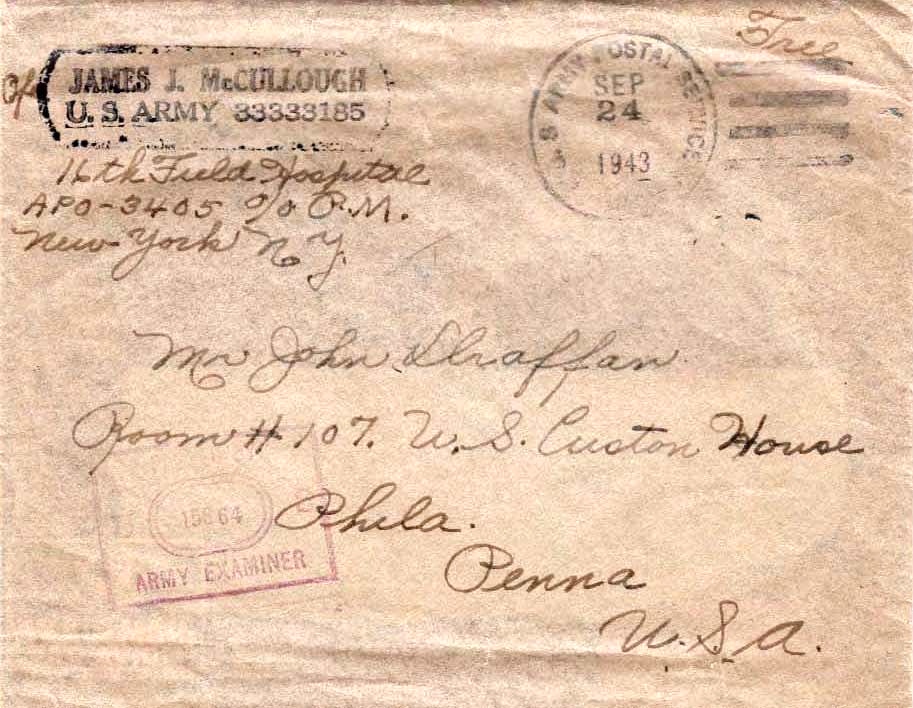 Free
JAMES J. McCULLOUGH
U. S. ARMY 33333185
16th Field Hospital
APO-3405 c/o P.M.
New York N Y.
U. S. ARMY POSTAL SERVICE
SEP
24
1943
Mr John
Room # 107. U. S. Custon House
Phila.
Penna
U. S. A.
ARMY EXAMINER